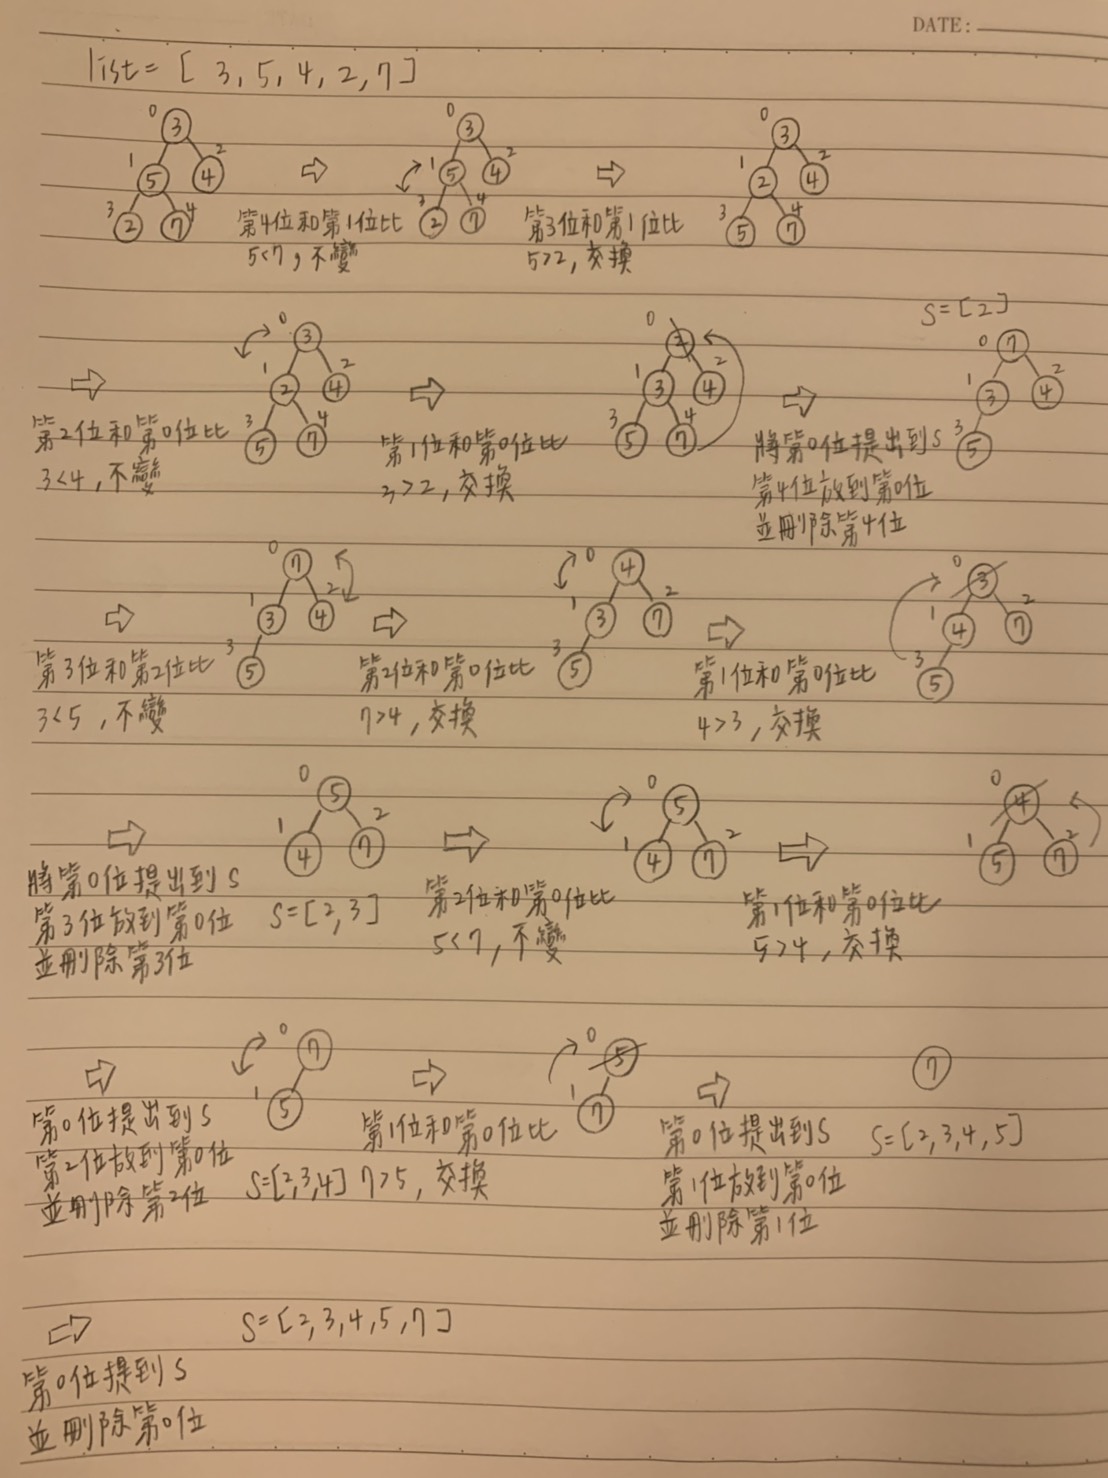 DATE:
list = [ 3, 5, 4, 2, 7 ]
0 3
1 5 2 4
3 2 4 7
第4位和第1位比
5<7, 不變
0 3
1 5 2 4
3 2 4 7
第3位和第1位比
5>2, 交換
0 3
1 2 2 4
3 5 4 7
第2位和第0位比
3<4, 不變
0 3
1 2 2 4
3 5 4 7
第1位和第0位比
3>2, 交換
0 2
1 3 2 4
3 5 4 7
將第0位提出到S
第4位放到第0位
並刪除第4位
S=[2]
0 7
1 3 2 4
3 5
第3位和第2位比
3<5, 不變
0 7
1 3 2 4
3 5
第2位和第0位比
7>4, 交換
0 4
1 3 2 7
3 5
第1位和第0位比
4>3, 交換
0 3
1 4 2 7
3 5
將第0位提出到S
第3位放到第0位
並刪除第3位
0 5
1 4 2 7
S=[2,3]
第2位和第0位比
5<7, 不變
0 5
1 4 2 7
第1位和第0位比
5>4, 交換
0 4
1 5 2 7
第0位提出到S
第2位放到第0位
並刪除第2位
0 7
1 5
S=[2,3,4]
第1位和第0位比
7>5, 交換
0 5
1 7
第0位提出到S
第1位放到第0位
並刪除第1位
7
S=[2,3,4,5]
第0位提到S
並刪除第0位
S=[2,3,4,5,7]